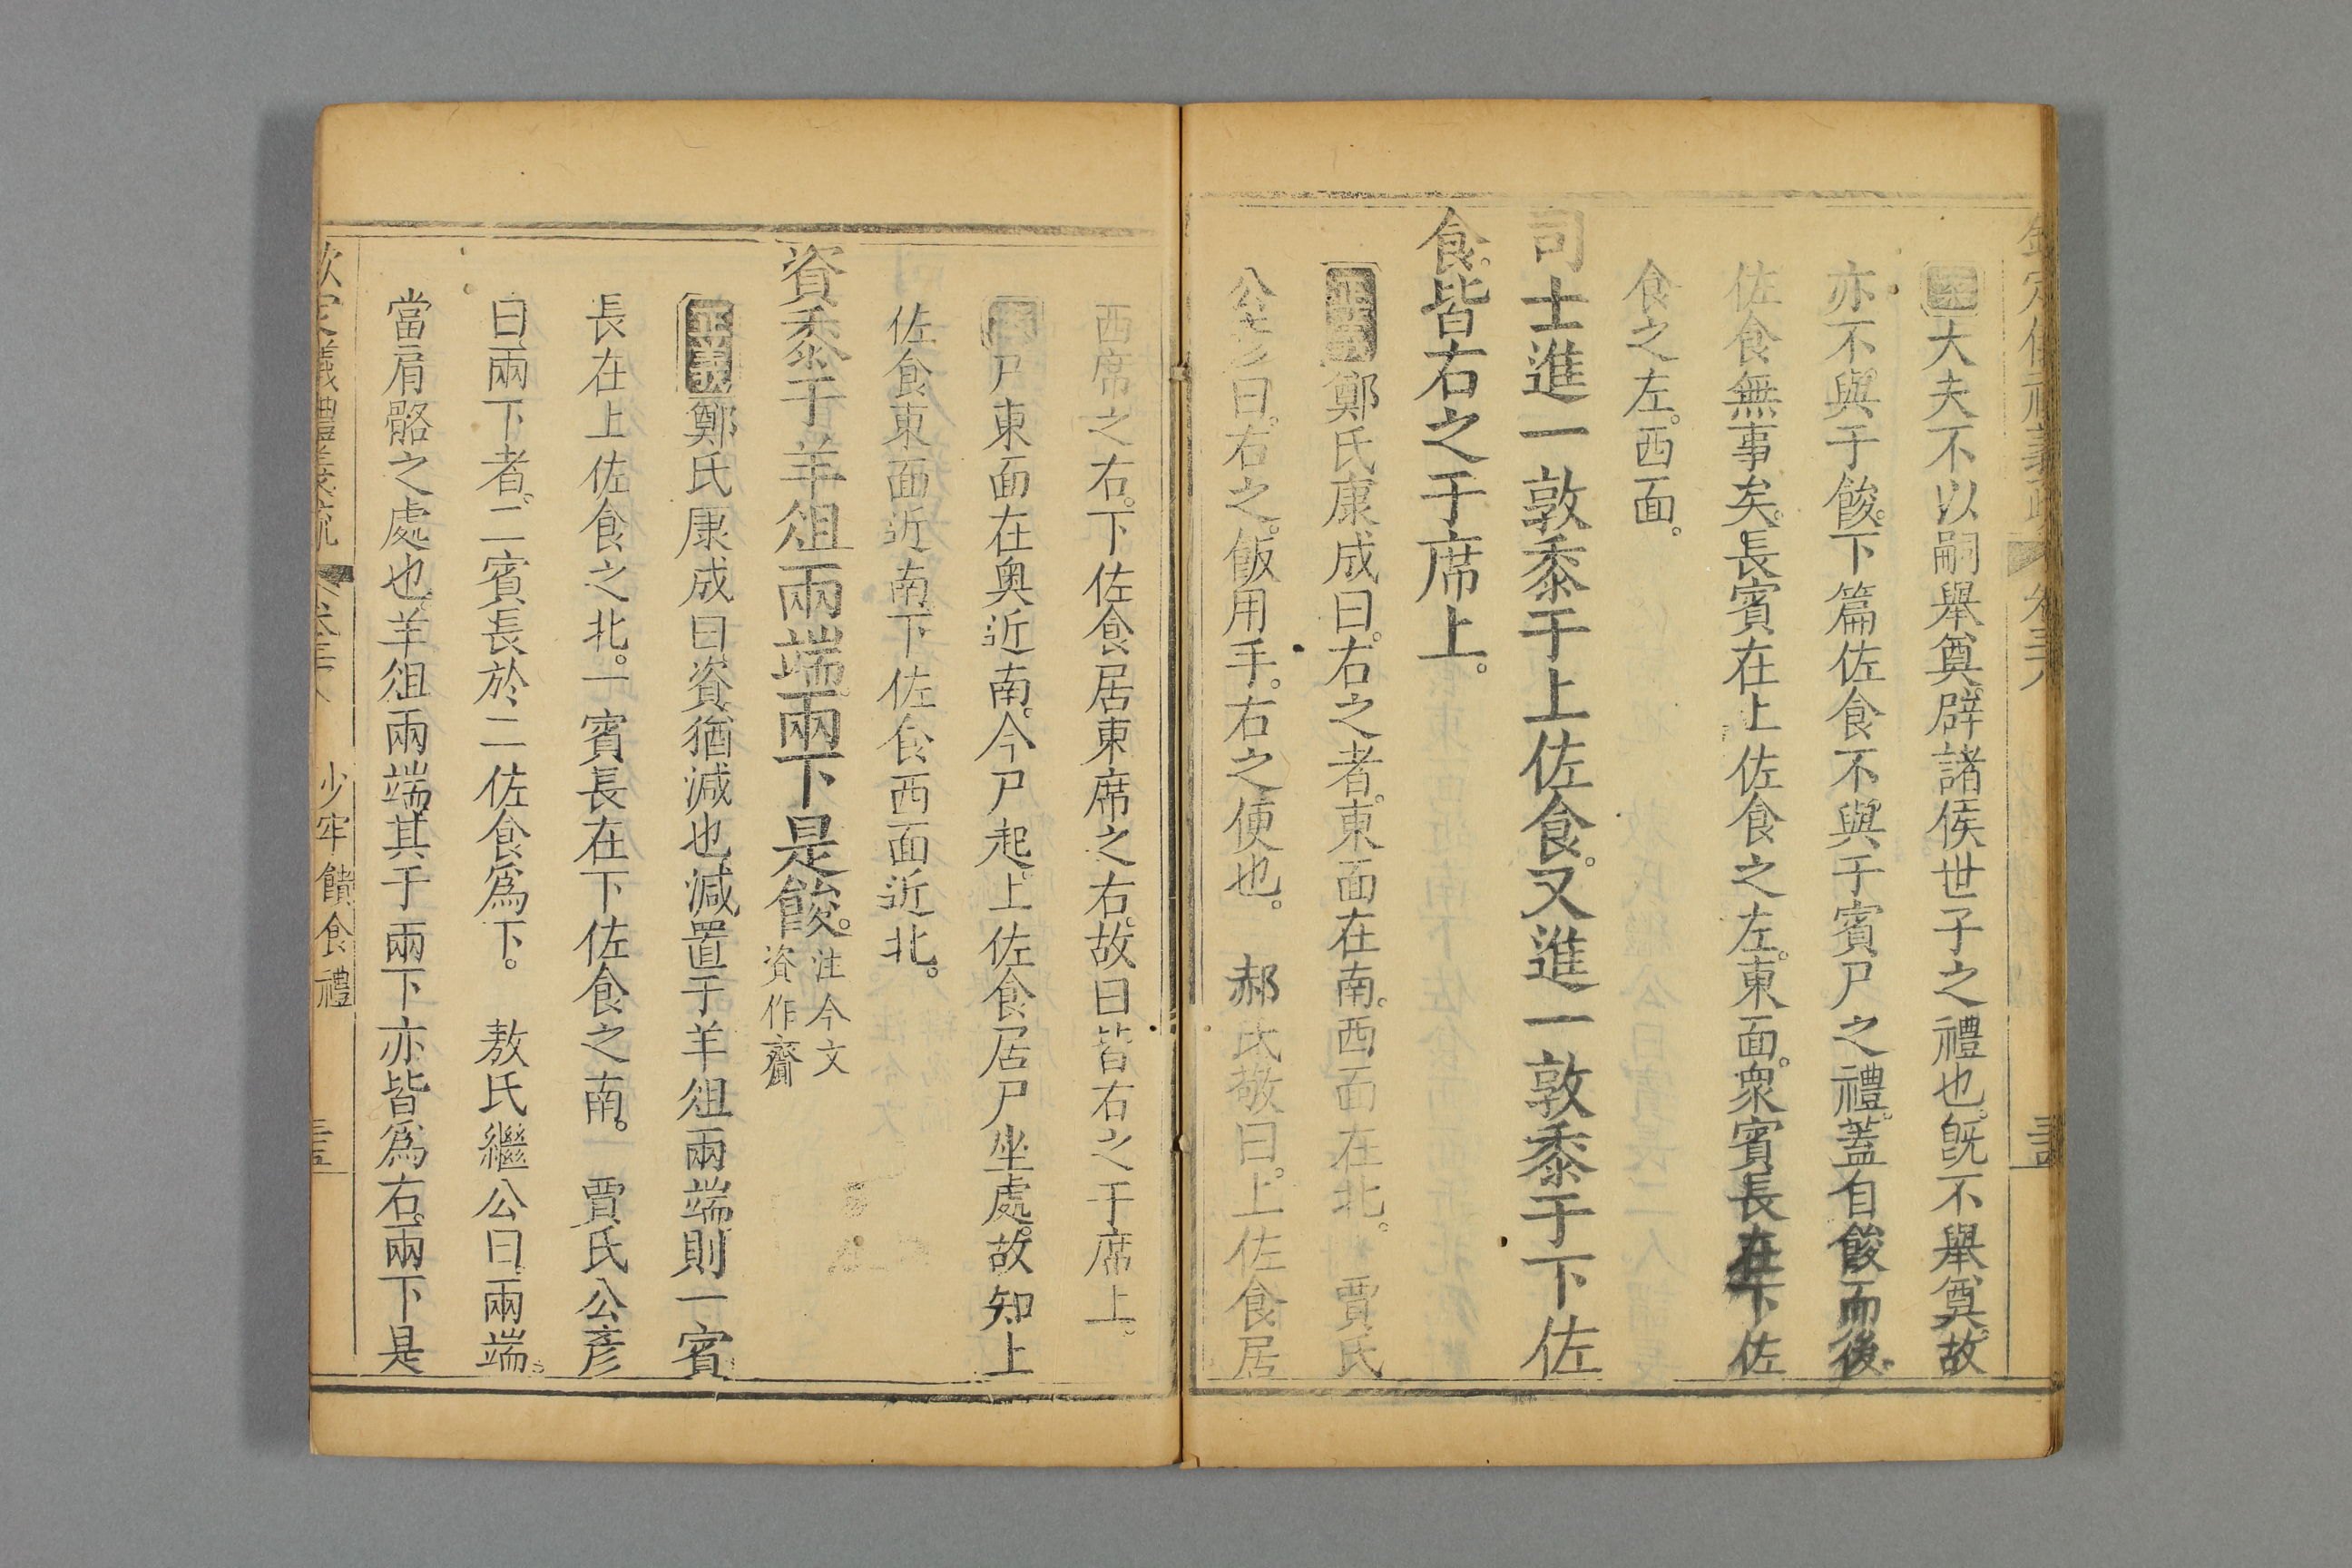 大夫不以嗣舉奠辟諸侯世子之禮也。旣不舉奠。故
亦不與于餕。下篇佐食不與于賓尸之禮。蓋自餕而後
佐食無事矣。長賓在上佐食之左。東面。眾賓長在下佐
食之左。西面。
司士進一敦黍于上佐食。又進一敦黍于下佐
食。皆右之于席上。
正義鄭氏康成曰。右之者。東面在南。西面在北。 賈氏
公彥曰。右之。飯用手。右之便也。 郝氏敬曰。上佐食居
西席之右。下佐食居東席之右。故曰皆右之于席上。
尸東面在奧近南。今尸起。上佐食居尸坐處。故知上
佐食東面近南下佐食西面近北。
資黍于羊俎兩端。兩下是餕。注今文
資作齎
正義鄭氏康成曰資猶減也減置于羊俎兩端則一賓
長在上佐食之北。一賓長在下佐食之南。 賈氏公彥
曰兩下者。二賓長於二佐食爲下。 敖氏繼公曰兩端。
當肩骼之處也。羊俎兩端。其于兩下亦皆爲右。兩下是
欽定儀禮義疏 卷三十八 少牢饋食禮 三五